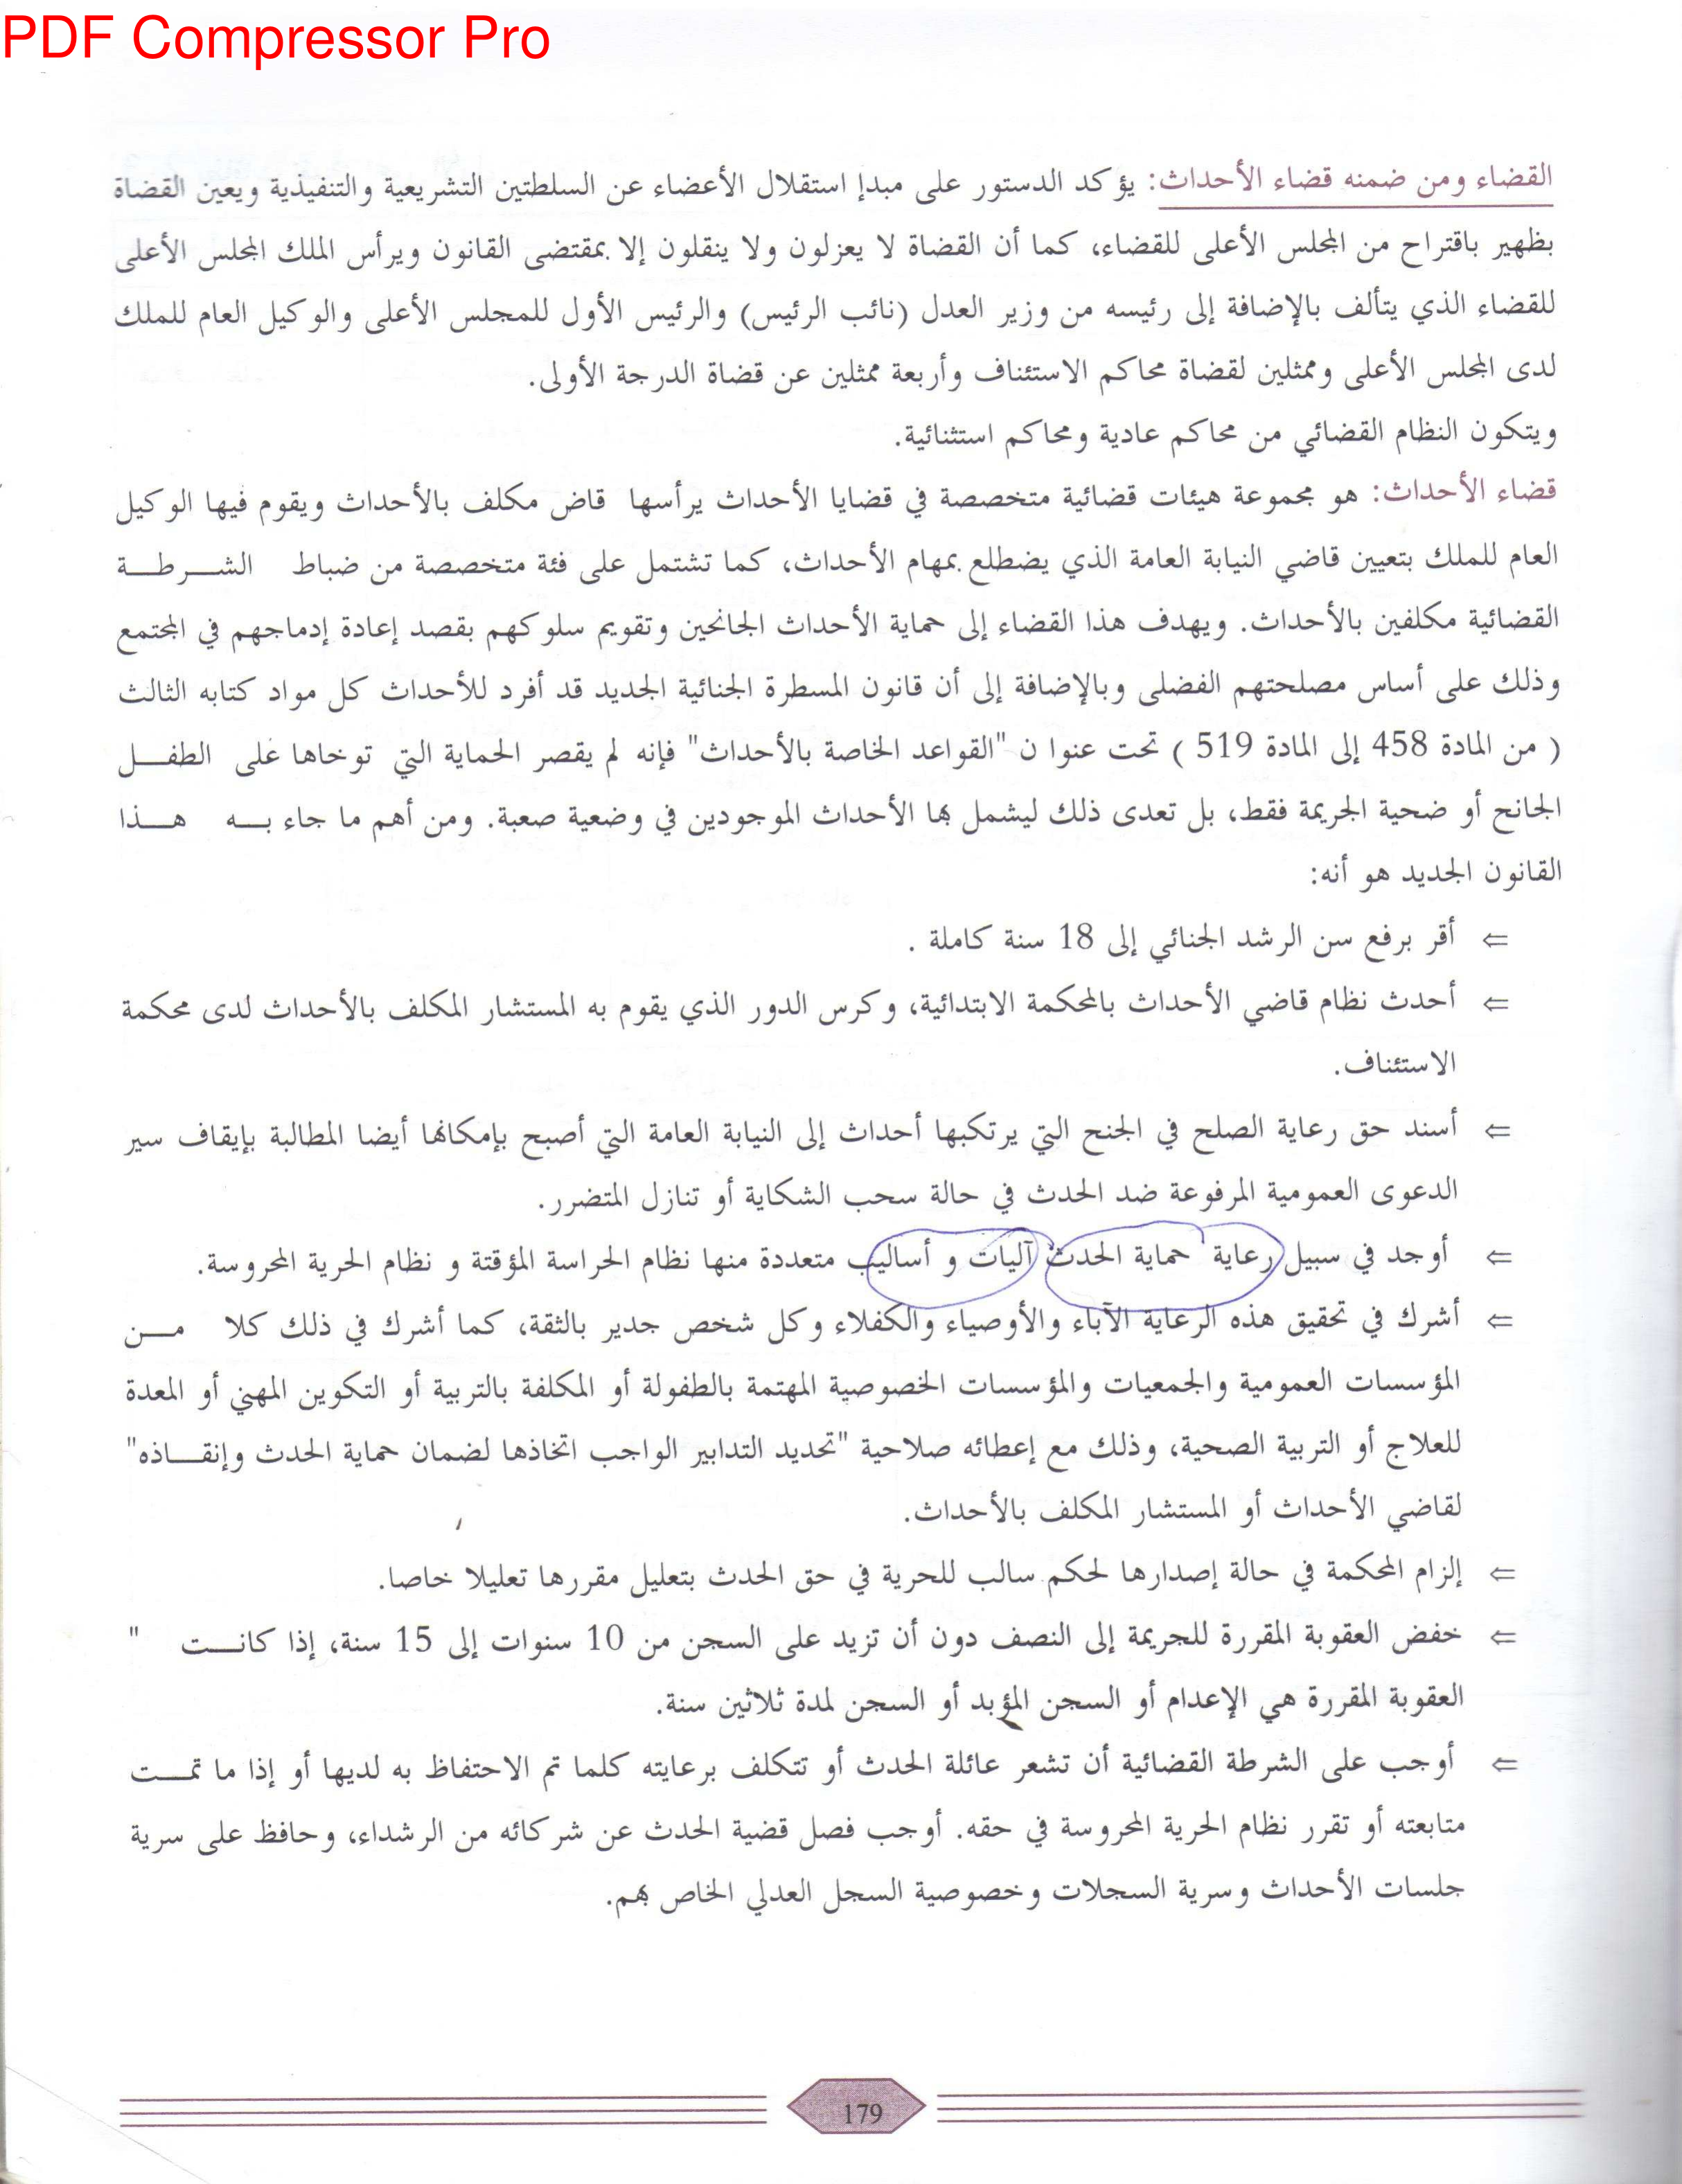 PDF Compressor Pro
القضاء ومن ضمنه قضاء الأحداث: يؤكد الدستور على مبدإ استقلال الأعضاء عن السلطتين التشريعية والتنفيذية ويعين القضاة
بظهير باقتراح من المجلس الأعلى للقضاء، كما أن القضاة لا يعزلون ولا ينقلون إلا بمقتضى القانون ويرأس الملك المجلس الأعلى
للقضاء الذي يتألف بالإضافة إلى رئيسه من وزير العدل (نائب الرئيس) والرئيس الأول للمجلس الأعلى والوكيل العام للملك
لدى المجلس الأعلى وممثلين لقضاة محاكم الاستئناف وأربعة ممثلين عن قضاة الدرجة الأولى.
ويتكون النظام القضائي من محاكم عادية ومحاكم استثنائية.
قضاء الأحداث: هو مجموعة هيئات قضائية متخصصة في قضايا الأحداث يرأسها قاض مكلف بالأحداث ويقوم فيها الوكيل
العام للملك بتعيين قاضي النيابة العامة الذي يضطلع بمهام الأحداث، كما تشتمل على فئة متخصصة من ضباط الشـــرطـــة
القضائية مكلفين بالأحداث. ويهدف هذا القضاء إلى حماية الأحداث الجانحين وتقويم سلوكهم بقصد إعادة إدماجهم في المجتمع
وذلك على أساس مصلحتهم الفضلى وبالإضافة إلى أن قانون المسطرة الجنائية الجديد قد أفرد للأحداث كل مواد كتابه الثالث
( من المادة 458 إلى المادة 519 ) تحت عنوا ن "القواعد الخاصة بالأحداث" فإنه لم يقصر الحماية التي توخاها على الطفـــل
الجانح أو ضحية الجريمة فقط، بل تعدى ذلك ليشمل بها الأحداث الموجودين في وضعية صعبة. ومن أهم ما جاء بـــه هـــذا
القانون الجديد هو أنه:
⇐ أقر برفع سن الرشد الجنائي إلى 18 سنة كاملة .
⇐ أحدث نظام قاضي الأحداث بالمحكمة الابتدائية، وكرس الدور الذي يقوم به المستشار المكلف بالأحداث لدى محكمة
الاستئناف.
⇐ أسند حق رعاية الصلح في الجنح التي يرتكبها أحداث إلى النيابة العامة التي أصبح بإمكانها أيضا المطالبة بإيقاف سير
الدعوى العمومية المرفوعة ضد الحدث في حالة سحب الشكاية أو تنازل المتضرر.
⇐ أوجد في سبيل رعاية حماية الحدث آليات و أساليب متعددة منها نظام الحراسة المؤقتة و نظام الحرية المحروسة.
⇐ أشرك في تحقيق هذه الرعاية الآباء والأوصياء والكفلاء وكل شخص جدير بالثقة، كما أشرك في ذلك كلا مـــن
المؤسسات العمومية والجمعيات والمؤسسات الخصوصية المهتمة بالطفولة أو المكلفة بالتربية أو التكوين المهني أو المعدة
للعلاج أو التربية الصحية، وذلك مع إعطائه صلاحية "تحديد التدابير الواجب اتخاذها لضمان حماية الحدث وإنقـــاذه"
لقاضي الأحداث أو المستشار المكلف بالأحداث.
⇐ إلزام المحكمة في حالة إصدارها لحكم سالب للحرية في حق الحدث بتعليل مقررها تعليلا خاصا.
⇐ خفض العقوبة المقررة للجريمة إلى النصف دون أن تزيد على السجن من 10 سنوات إلى 15 سنة، إذا كانـــت "
العقوبة المقررة هي الإعدام أو السجن المؤبد أو السجن لمدة ثلاثين سنة.
⇐ أوجب على الشرطة القضائية أن تشعر عائلة الحدث أو تتكلف برعايته كلما تم الاحتفاظ به لديها أو إذا ما تمـــت
متابعته أو تقرر نظام الحرية المحروسة في حقه. أوجب فصل قضية الحدث عن شركائه من الرشداء، وحافظ على سرية
جلسات الأحداث وسرية السجلات وخصوصية السجل العدلي الخاص بهم.
179